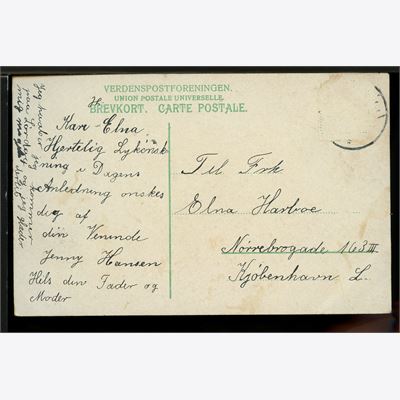 VERDENSPOSTFORENINGEN.
UNION POSTALE UNIVERSELLE.
BREVKORT. CARTE POSTALE.
Kære Elna
Hjertelig Lykønsk
ning i Dagens
Anledning ønskes
dig af
din Veninde
Jenny Hansen
Hils din Fader og
Moder
Til Frk
Elna Harboe
Nørrebrogade 163 III
Kjøbenhavn L.
Jeg jeg kommer
paa og jeg glæder
mig meget